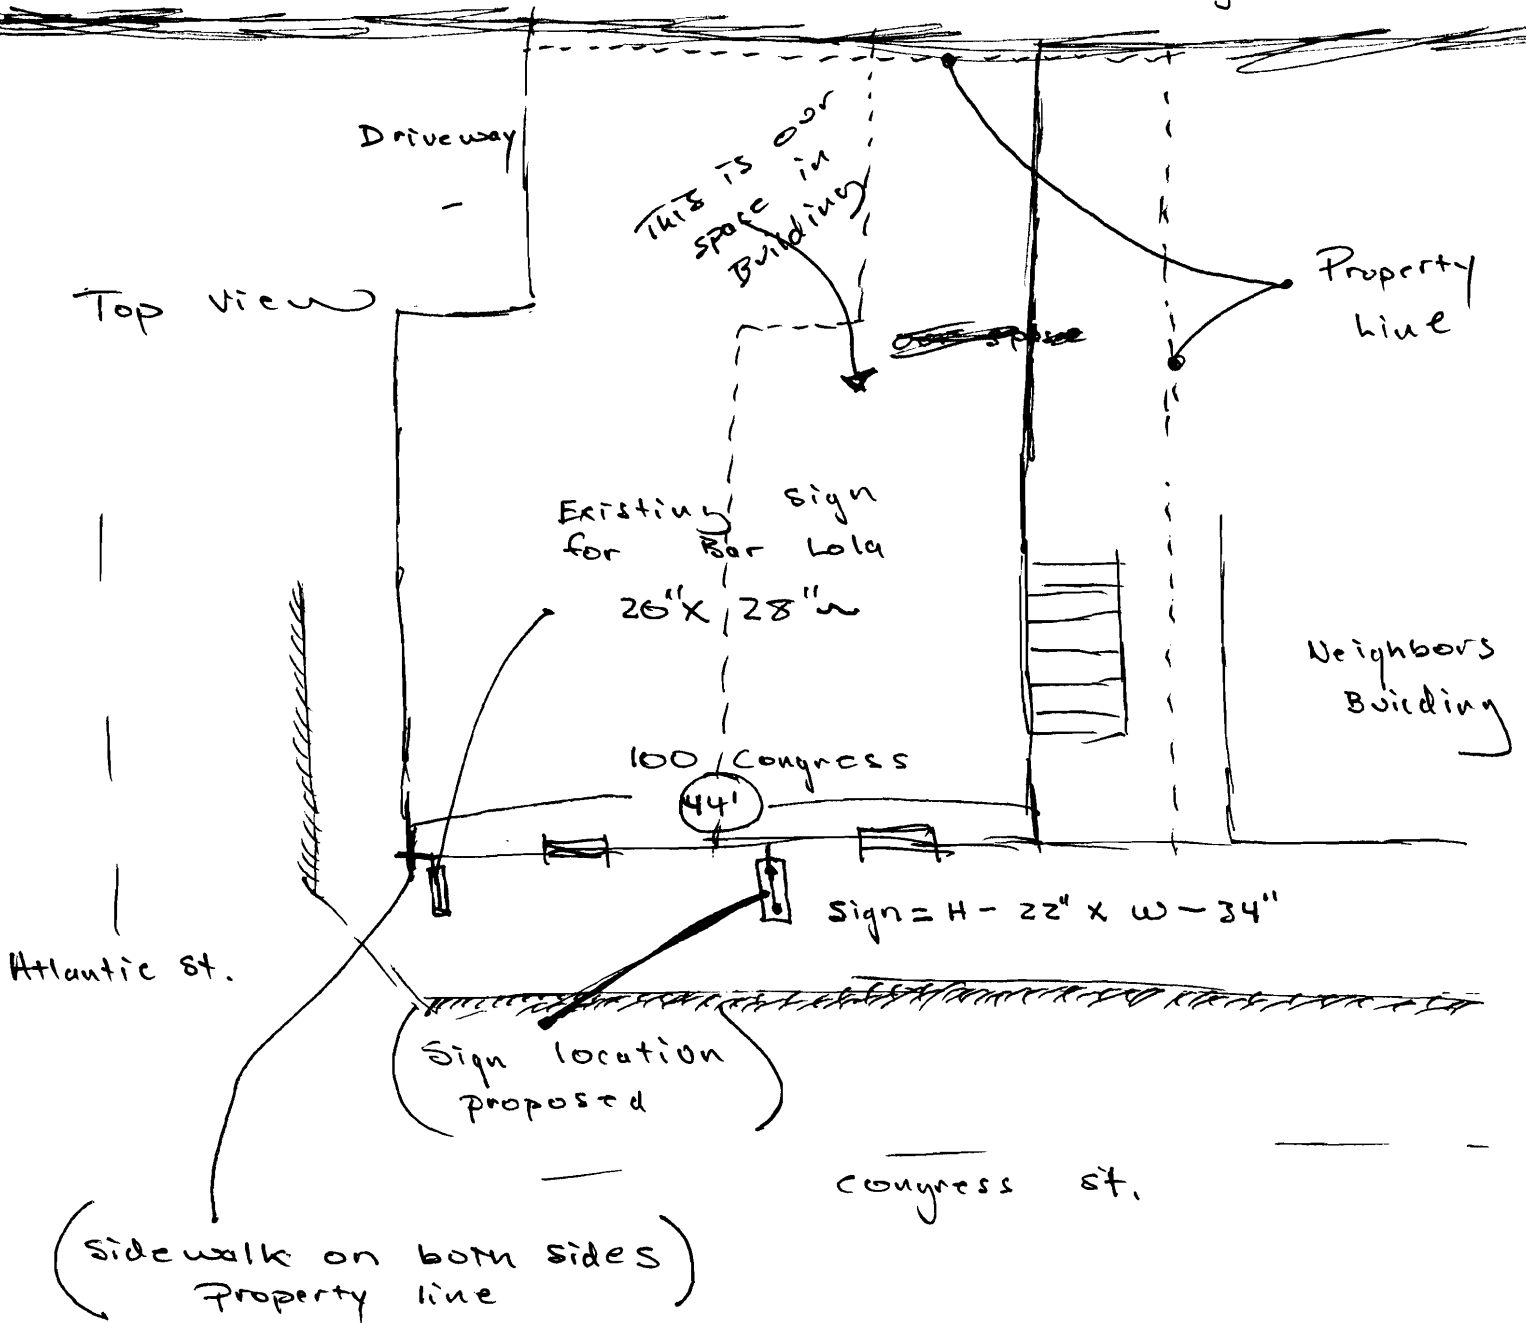 Driveway
This is our
space in
Building
Top view
Property
Line
Existing sign
for Bar Lola
20" x 28"
Neighbors
Building
100 Congress
44'
Sign = H - 22" x W - 34"
Atlantic St.
Sign location
proposed
Congress St.
(Sidewalk on both sides)
Property line